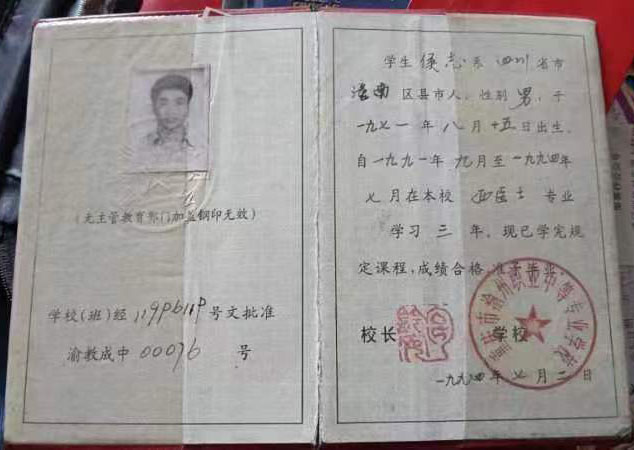 (无主管教育部门加盖钢印无效)
学校(班)经 号文批准
渝教成中 00076 号
学生侯志 系四川省市
潼南区县市人，性别男，于
一九七一年八月十五日出生，
自一九九一年九月至一九九四年
七月在本校 西医士 专业
学习三年，现已学完规
定课程，成绩合格，准予毕业。
校长 学校
一九九四年七月二日
职业中等专业学校